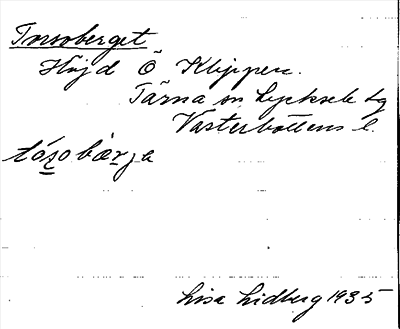 Torsoberget
Höjd Ö Klippen.
Tärna sn Lycksele tg
Västerbottens l.
tóṣobæ̀rja
Lisa Lidberg 1935